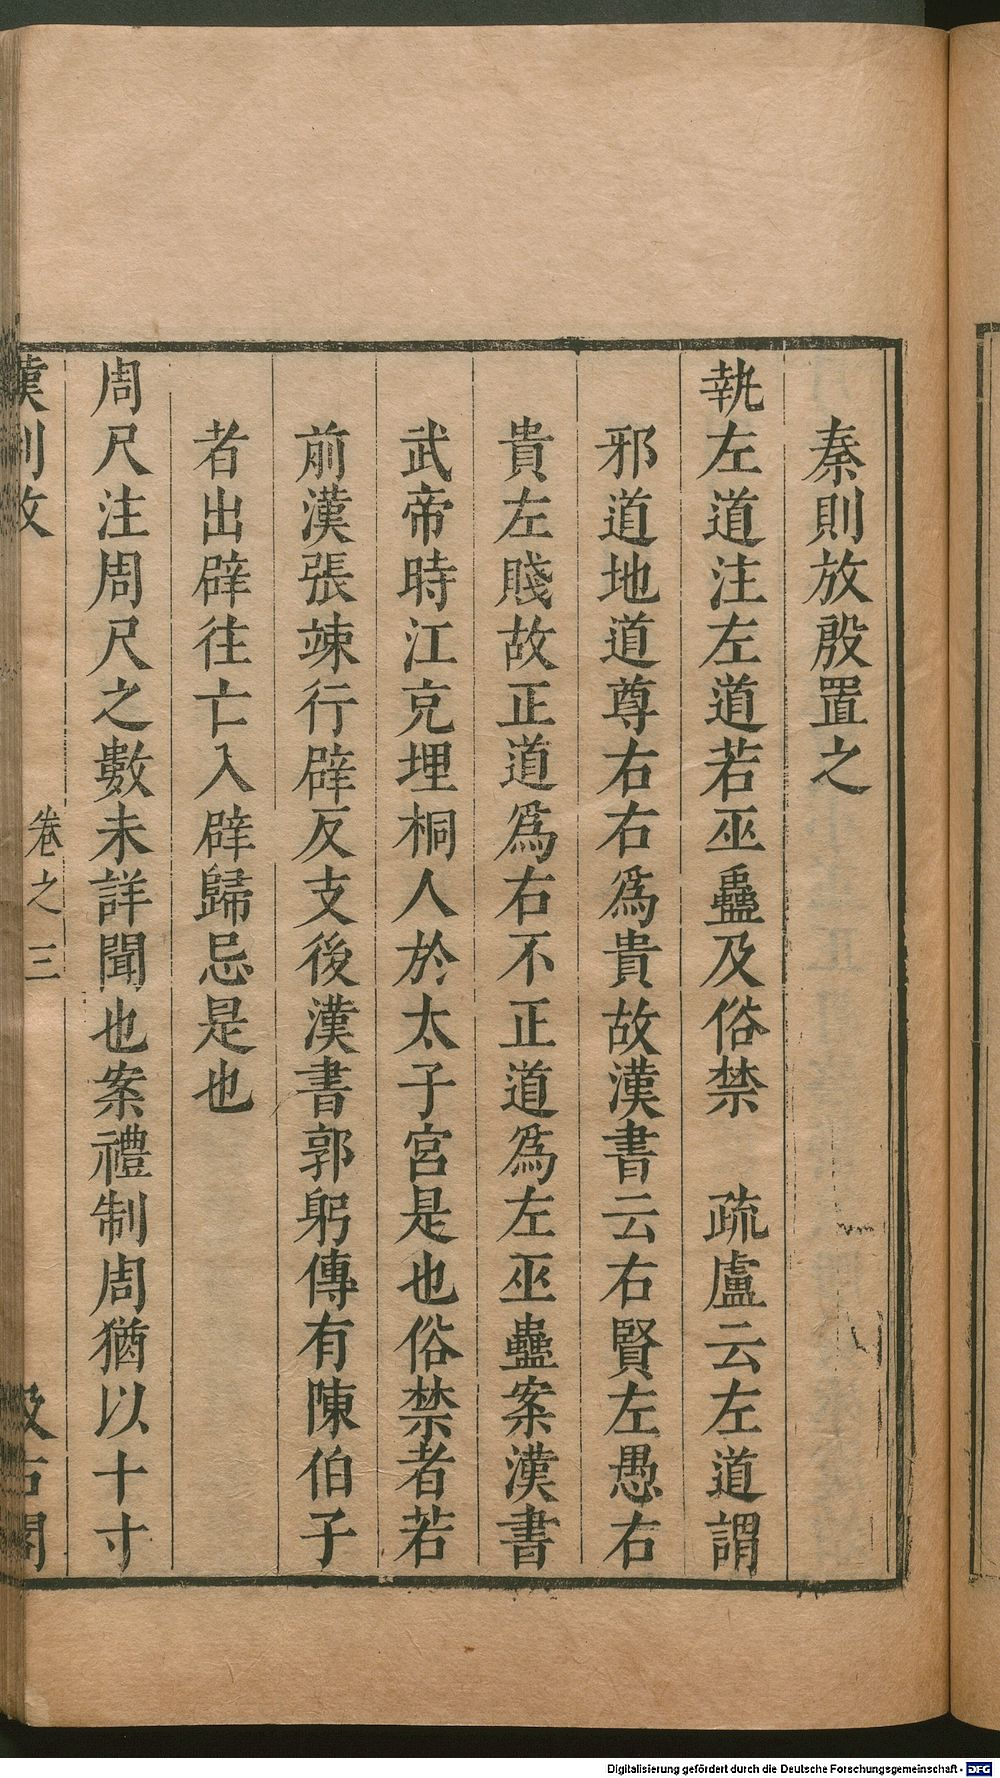 秦則放殷置之
執左道注左道若巫蠱及俗禁　疏盧云左道謂
邪道地道尊右右爲貴故漢書云右賢左愚右
貴左賤故正道爲右不正道爲左巫蠱案漢書
武帝時江充埋桐人於太子宮是也俗禁者若
前漢張竦行辟反支後漢書郭躬傳有陳伯子
者出辟往亡入辟歸忌是也
周尺注周尺之數未詳聞也案禮制周猶以十寸
漢制攷　卷之三　汲古閣
Digitalisierung gefördert durch die Deutsche Forschungsgemeinschaft - DFG